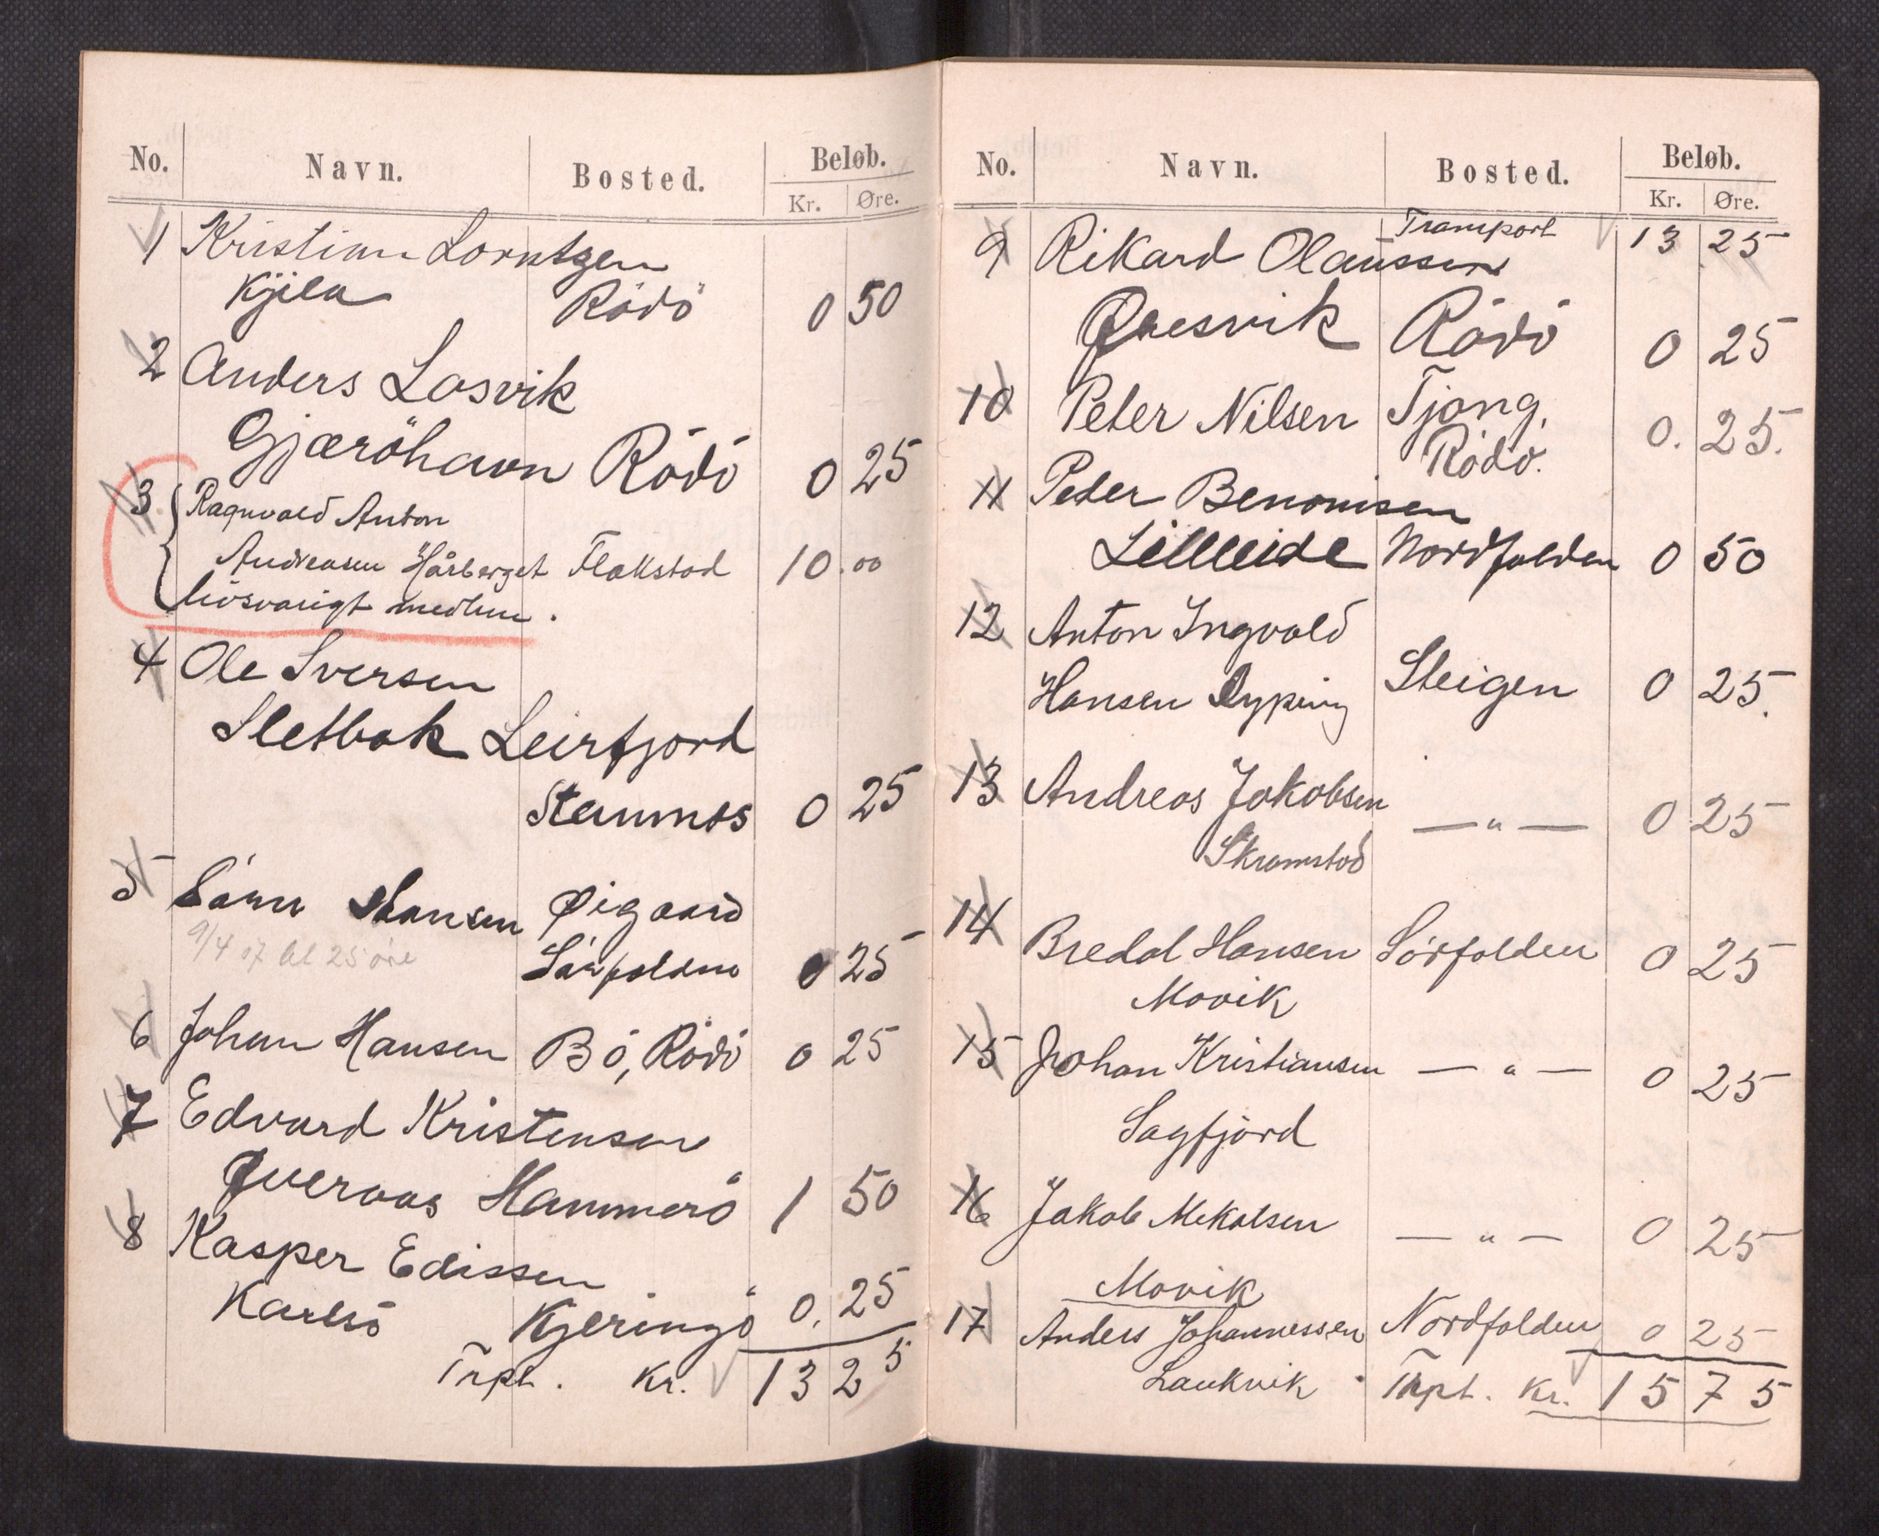 No. Navn. Bosted. Beløb.
Kr. Øre.
1 Kristian Lorntzen
Kjila Rödö 0 50
2 Anders Losvik
Gjæröhavn Rödö 0 25
3 Ragnvald Anton
Andreasen Hårberget Flakstad 10.00
livsvarigt medlem.
4 Ole Iversen
Sletbak Leirfjord
Stamnes 0 25
5 Sörn Hansen Øigaard
9/4 07 bl 25 øre Sörfolden 0 25
6 Johan Hansen Bö, Rödö 0 25
7 Edvard Kristensen
Qvervaas Hammerö 1 50
8 Kasper Edissen
Karlsö Kjeringö 0,25
Trpt. Kr. 13 25
No. Navn. Bosted. Beløb.
Kr. Øre.
Transport 13 25
9 Rikard Olaussen
Qvesvik Rödö 0 25
10 Peter Nilsen Tjong,
Rödö. 0. 25.
11 Peder Benonisen
Lilleeide Nordfolden 0 50
12 Anton Ingvald
Hansen Dyping Steigen 0 25.
13 Andreas Jakobsen — " — 0 25
Skramstad
14 Bredal Hansen Sörfolden 0 25
Movik
15 Johan Kristiansen — " — 0 25
Sagfjord
16 Jakob Mekalsen — " — 0 25
Movik
17 Anders Johannessen Nordfolden 0 25
Laukvik Trpt. Kr. 15 75